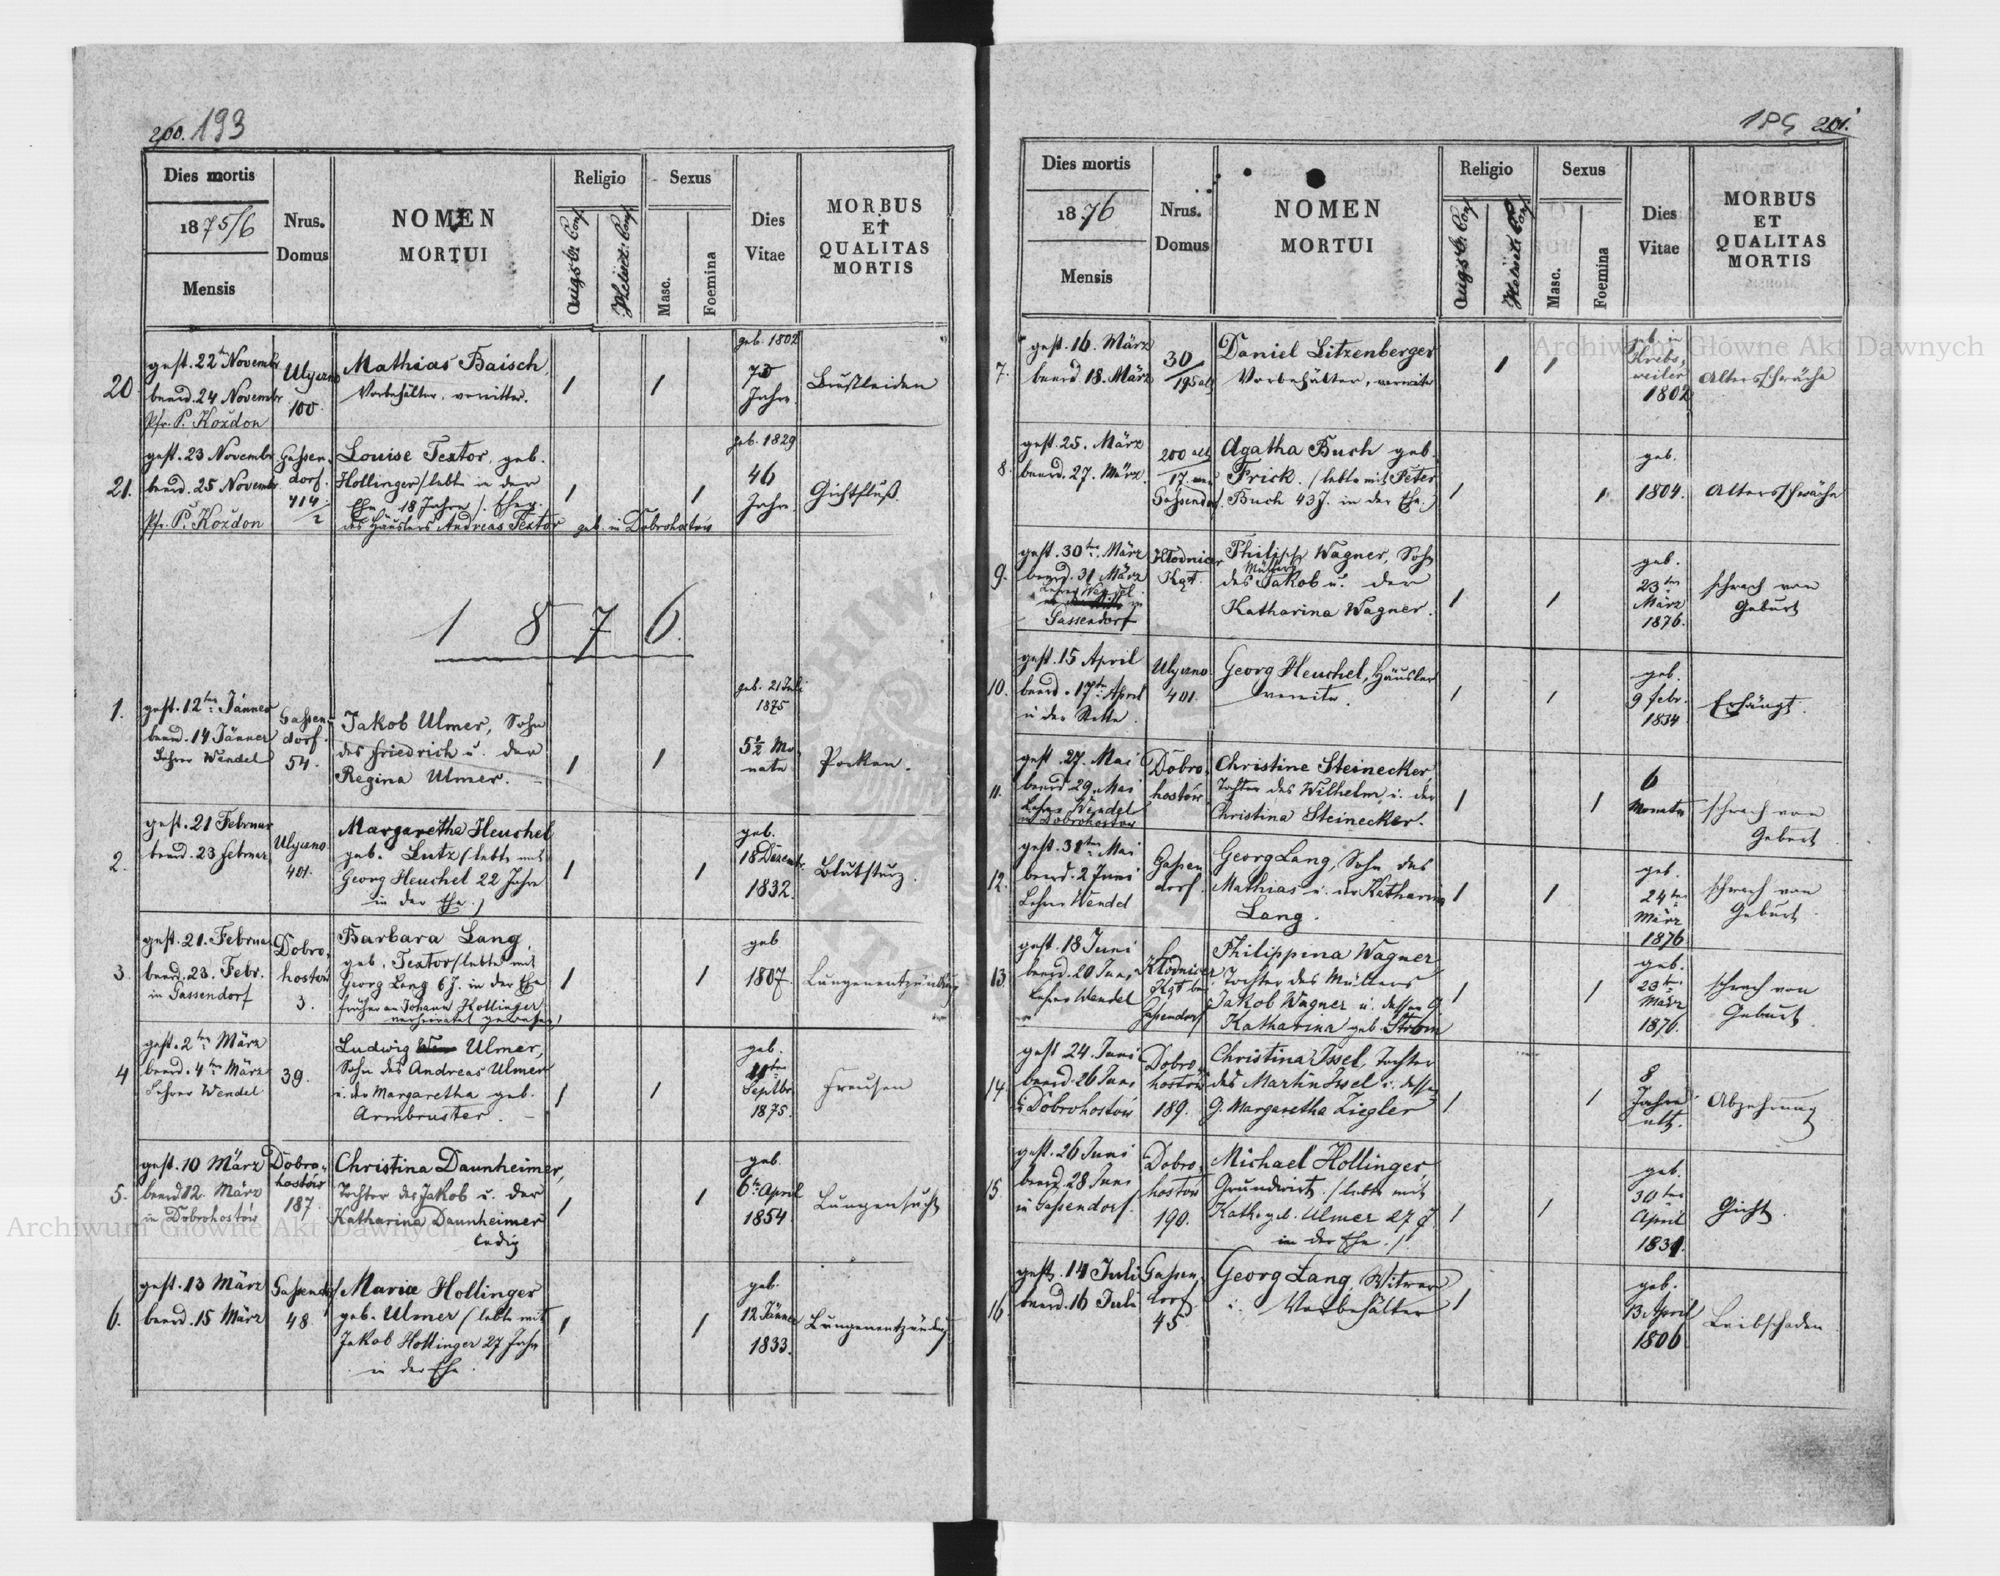 200. 193
Dies mortis
1875/6
Mensis
Nrus.
Domus
NOMEN
MORTUI
Religio
Augsb. Conf.
Helvet. Conf.
Sexus
Masc.
Foemina
Dies
Vitae
MORBUS
ET
QUALITAS
MORTIS
20.
gest. 22ten Novembr
beerd. 24 Novembr
Pfr. P. Koždon
Ulyczno
100.
Mathias Baisch,
Vorbehälter, verwittw.
1
1
geb. 1802
73
Jahre.
Brustleiden
21.
gest. 23 Novembr
beerd. 25 Novembr
Pfr. P. Koždon
Gassen-
dorf.
Louise Textor, geb.
Hollinger / lebte in der
Ehe 18 Jahre /. Ehew.
des Häuslers Andreas Textor geb. in Dobrohostów
1
1
geb. 1829
46
Jahre
Gichtfluß.
1876.
1.
gest. 12ten Jänner
beerd. 14 Jänner
Lehrer Wendel
Gassen-
dorf.
54.
Jakob Ulmer, Sohn
des Friedrich u. der
Regina Ulmer.
1
1
geb. 21 Juli
1875
5½ Mo-
nate
Pocken.
2.
gest. 21 Februar
beerd. 23 Februar
Ulyczno
401.
Margaretha Heuchel
geb. Lutz / lebte mit
Georg Heuchel 22 Jahre
in der Ehe. /
1
1
geb.
18 Dezembr.
1832.
Blutsturz.
3.
gest. 21. Februar
beerd. 23. Febr.
in Gassendorf
Dobro-
hostów
3.
Barbara Lang,
geb. Textor / lebte mit
Georg Lang 6 J. in der Ehe
früher an Johann Hollinger
verheiratet gewesen /
1
1
geb
1807
Lungenentzündung
4
gest. 2ten März
beerd. 4ten März
Lehrer Wendel
39.
Ludwig Ulmer,
Sohn des Andreas Ulmer
u. der Margaretha geb.
Armbruster.
1
1
geb.
Septbr
1875.
Freusen
5.
gest. 10 März
beerd 12. März
in Dobrohostów
Dobro-
hostów
187.
Christina Daunheimer,
Tochter des Jakob u. der
Katharina Daunheimer
ledig
1
1
geb.
6ten April
1854
Lungensucht
6.
gest. 13 März
beerd. 15 März
Gassendorf
48.
Marie Hollinger
geb. Ulmer / lebte mit
Jakob Hollinger 27 Jahre
in der Ehe.
1
1
geb.
12 Jänner
1833.
Lungenentzündung
201.
Dies mortis
1876
Mensis
Nrus.
Domus
NOMEN
MORTUI
Religio
Augsb. Conf.
Helvet. Conf.
Sexus
Masc.
Foemina
Dies
Vitae
MORBUS
ET
QUALITAS
MORTIS
7.
gest. 16. März
beerd. 18. März
30
195 alt
Daniel Litzenberger
Vorbehälter, verwitw
1
1
geb. in
Krebs-
weiler
1802
Altersschwäche
8.
gest. 25. März
beerd. 27. März.
200 alt
17 neu
Gassendorf
Agatha Buch geb.
Frick. / lebte mit Peter
Buch 43 J. in der Ehe. /
1
1
geb.
1804.
Altersschwäche
9.
gest. 30ten März
beerd. 31 März
Lehrer Wendel
in
Gassendorf
Kłodnicer
Kgt.
Philipp Wagner, Sohn
Müllers
des Jakob u. der
Katharina Wagner.
1
1
geb.
23ten
März
1876.
schwach von
Geburt
10.
gest. 15 April
beerd. 17ten April
Ulyczno
401.
Georg Heuchel, Häusler
verwitw.
1
1
geb.
9 Febr.
1834
Erhängt.
11.
gest. 27. Mai
beerd 29. Mai
Lehrer Wendel
in Dobrohostów
Dobro-
hostów
Christine Steinecker,
Tochter des Wilhelm, u. der
Christina Steinecker.
1
1
6
Monate
schwach von
Geburt
12.
gest. 31ten Mai
beerd. 2 Juni
Lehrer Wendel
Gassen
dorf.
Georg Lang, Sohn des
Mathias u. der Katharina
Lang.
1
1
geb.
24ten
März
1876
schwach von
Geburt.
13.
gest. 18 Juni
beerd. 20 Juni
Lehrer Wendel
Kłodnicer
Kgt bei
Gassendorf
Philippina Wagner
Tochter des Müllers
Jakob Wagner u. dessen G.
Katharina geb. Strom
1
1
geb.
23ten
März
1876.
schwach von
Geburt
14.
gest 24. Juni
beerd. 26 Juni
in Dobrohostów
Dobro-
hostów
189.
Christina Issel, Tochter
des Martin Issel u. dessen
G. Margaretha Ziegler
1
1
8
Jahre
alt.
Abzehrung
15
gest. 26 Juni
beerd. 28 Juni
in Gassendorf.
Dobro-
hostów
190.
Michael Hollinger
Grundwirt. / lebte mit
Kath. geb. Ulmer 27 J
in der Ehe. /.
1
1
geb.
30ten
April
1831.
Gicht.
16
gest. 14 Juli
beerd. 16 Juli
Gassen-
dorf.
45.
Georg Lang, Witwer
u. Vorbehälter
1
geb.
13. April
1806
Leibschaden
Archiwum Główne Akt Dawnych
Archiwum Główne Akt Dawnych